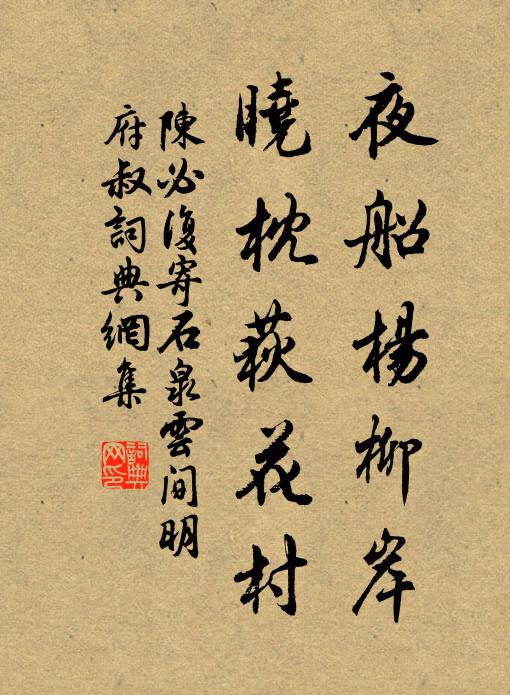 夜船楊柳岸
曉枕荻花村
陳必復寄石泉雲間明
府叔詞典網集
詞典
网印